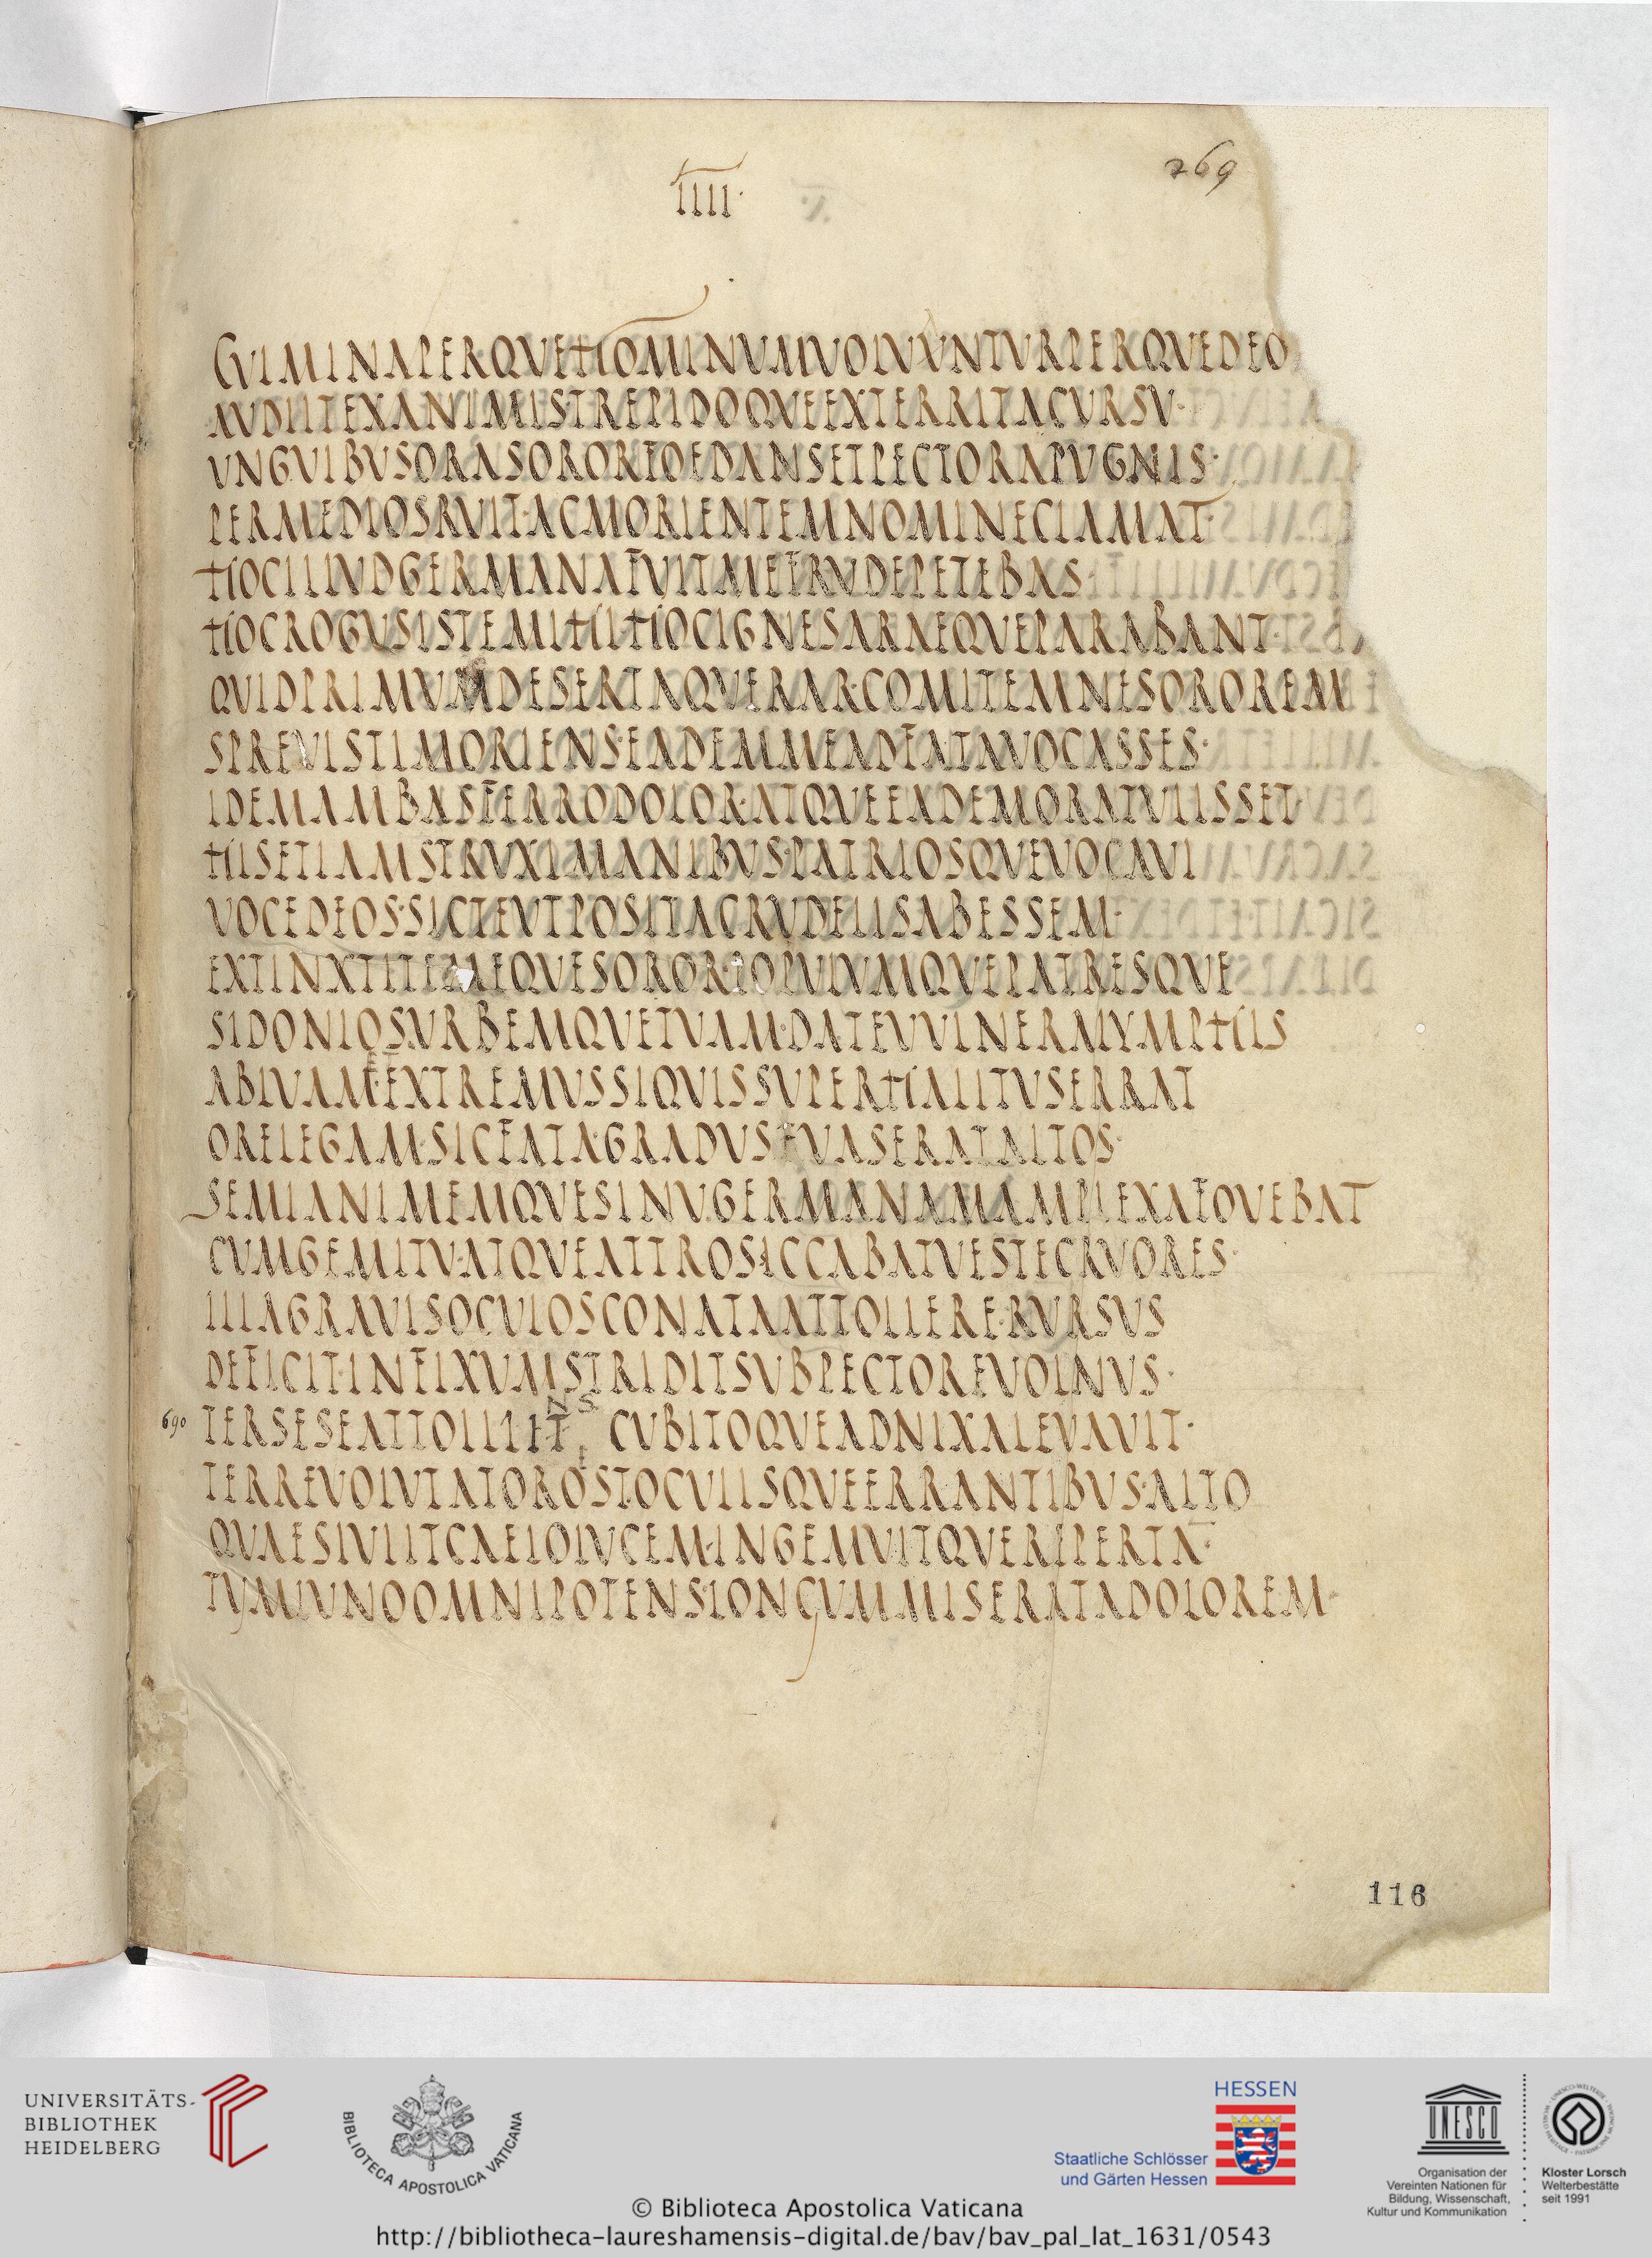 269
IIII·
CULMINAPERQUEHOMINUMUOLUUNTURPERQUEDEO
AUDIITEXANIMISTREPIDOQUEEXTERRITACURSU·
UNGUIBUSORASORORFOEDANSETPECTORAPUGNIS·
PERMEDIOSRUIT·ACMORIENTEMNOMINECLAMAT·
HOCILLUDGERMANAFUITMEFRUDEPETEBAS·
HOCROGUSISTEMIHIHOCIGNESARAEQUEPARABANT·
QUIDPRIMUMDESERTAQUERAR·COMITEMNESOROREM
SPREUISTIMORIENS·EADEMMEADFATAUOCASSES·
IDEMAMBASFERRODOLOR·ATQUEEADEMORATULISSET·
HISETIAMSTRUXIMANIBUS·PATRIOSQUEUOCAUI
UOCEDEOS·SICTEUTPOSITACRUDELISABESSEM·
EXTINXTITEMEQUESOROR·POPULUMQUEPATRESQUE
SIDONIOS·URBEMQUETUAM·DATEUULNERALYMPHIS
ABLUAM·EXTREMUSSIQUISSUPERHALITUSERRAT
ORELEGAM·SICFATA·GRADUSEUASERATALTOS·
SEMIANIMEMQUESINU·GERMANAMAMPLEXAFOUEBAT
CUMGEMITU·ATQUEATTROSICCABATUESTECRUORES·
ILLAGRAUISOCULOSCONATAATTOLLERE·RURSUS
DEFICIT·INFIXUMSTRIDITSUBPECTOREUOLNUS·
NS
690 TERSESEATTOLLIIT CUBITOQUEADNIXALEUAUIT·
TERREUOLUTATOROST·OCULISQUEERRANTIBUS·ALTO
QUAESIUIITCAELOLUCEM·INGEMUITQUEREPERTA·
TUMIUNOOMNIPOTENS·LONGUMMISERATADOLOREM·
116
UNIVERSITÄTS-
BIBLIOTHEK
HEIDELBERG
BIBLIOTECA APOSTOLICA VATICANA
HESSEN
Staatliche Schlösser
und Gärten Hessen
UNESCO
Organisation der
Vereinten Nationen für
Bildung, Wissenschaft,
Kultur und Kommunikation
Kloster Lorsch
Welterbestätte
seit 1991
© Biblioteca Apostolica Vaticana
http://bibliotheca-laureshamensis-digital.de/bav/bav_pal_lat_1631/0543